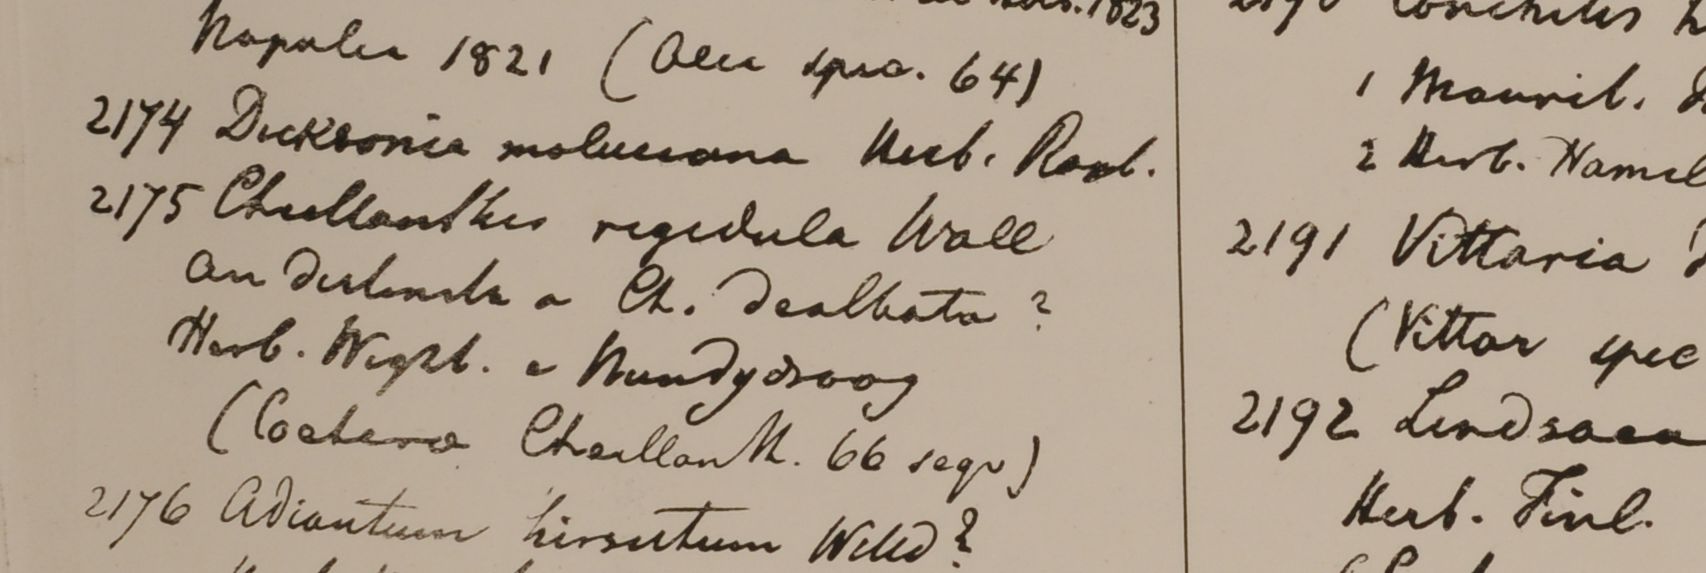 1823
Napalia 1821 (Alia spec. 64)
2174 Dicksonia moluccana Herb. Roxb.
2175 Cheilanthes regidula Wall
an distincta a Ch. dealbata?
Herb. Wight. e Nundydroog
(Coetera Cheilanth. 66 sequ)
2176 Adiantum hirsutum Willd?
1 Maurit.
2 Herb. Hamil
2191 Vittaria
(Vittar spec
2192 Lindsaea
Herb. Finl.